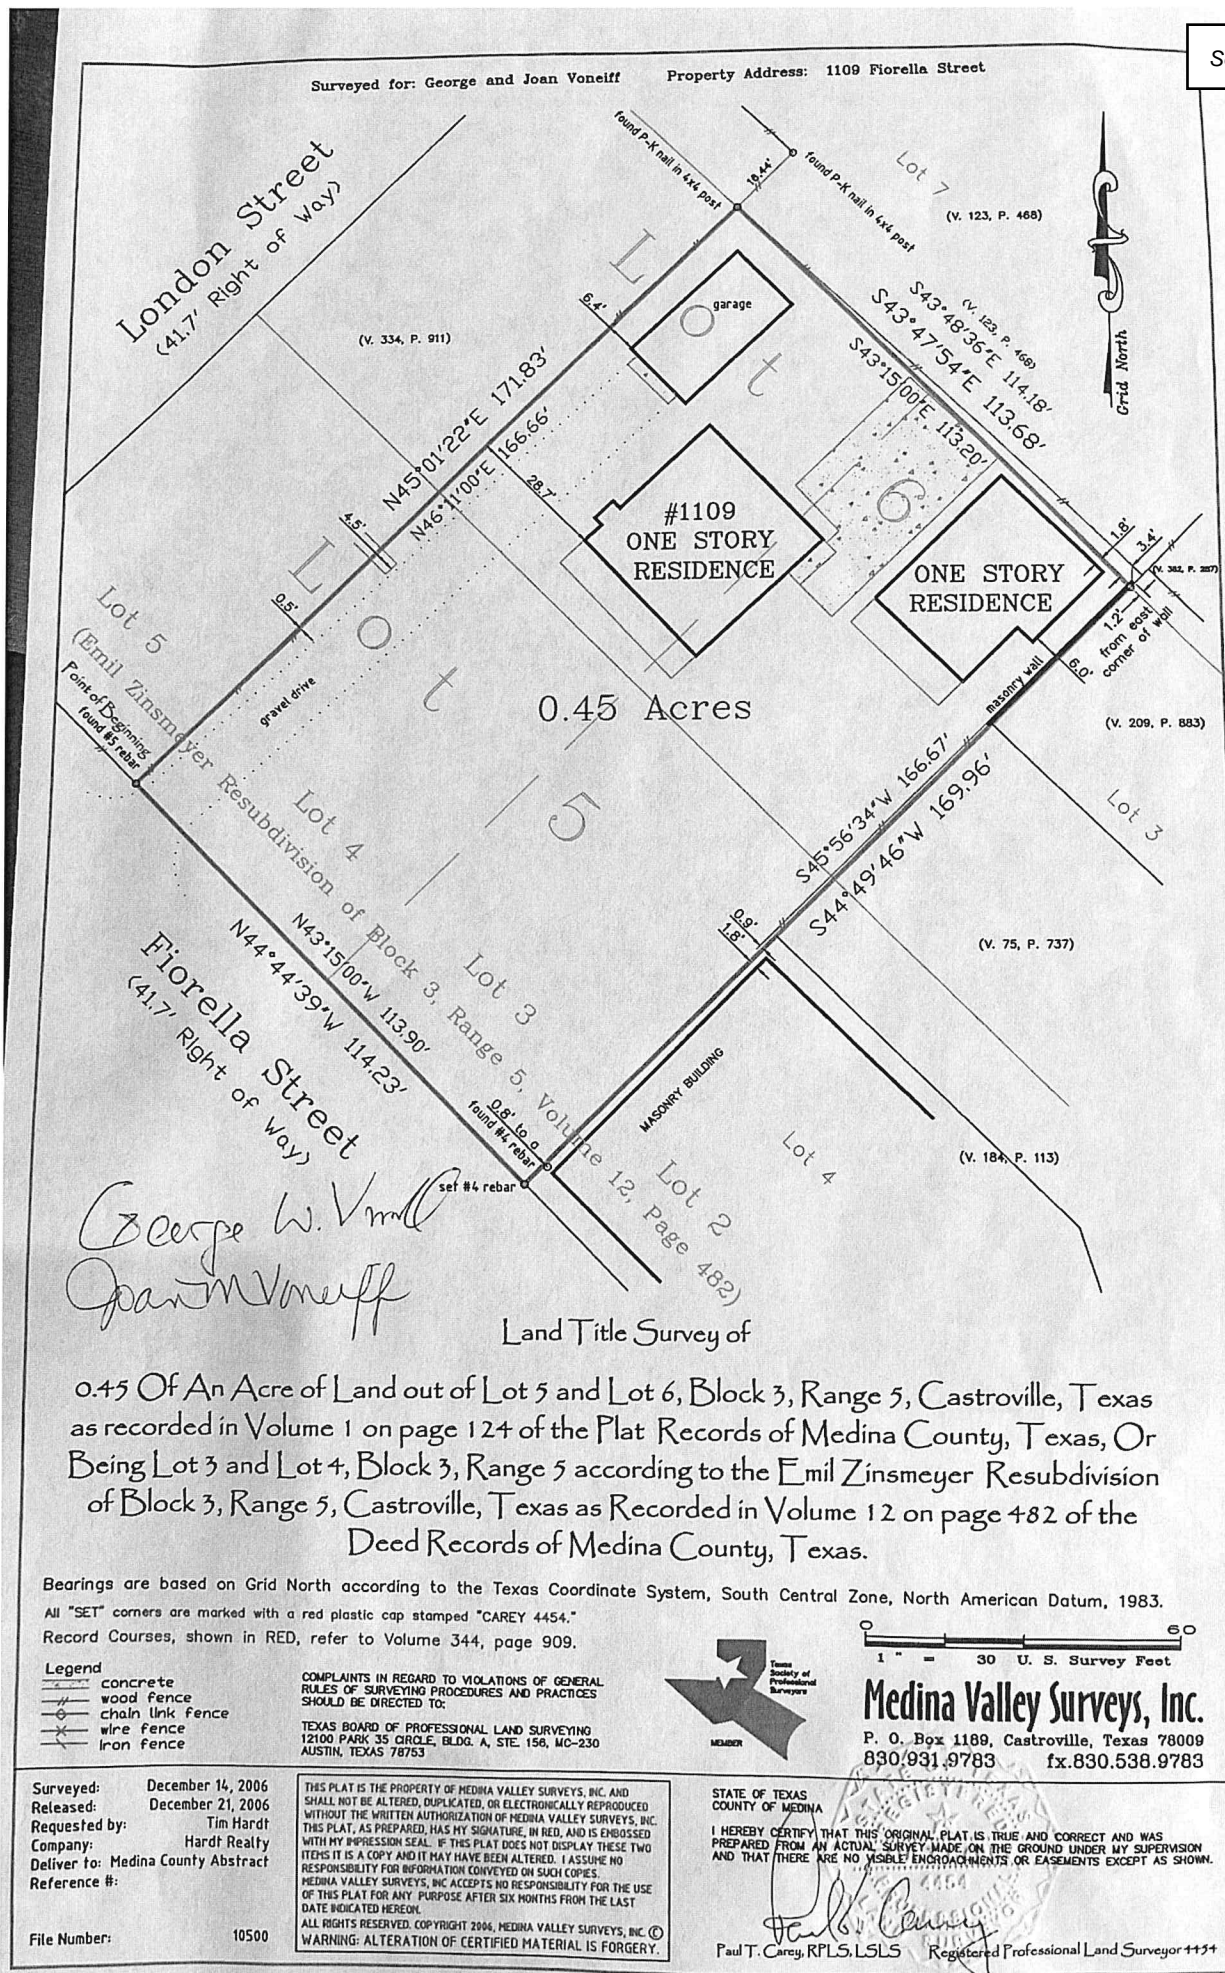 Surveyed for: George and Joan Voneiff Property Address: 1109 Fiorella Street
London Street
(41.7' Right of Way)
found P-K nail in 4x4 post
18.44'
found P-K nail in 4x4 post
Lot 7
(V. 123, P. 468)
Grid North
(V. 334, P. 911)
6.4'
garage
Lot 6
(V. 123, P. 468)
S43°48'36"E 114.18'
S43°47'54"E 113.68'
S43°15'00"E 113.20'
N45°01'22"E 171.83'
N46°11'00"E 166.66'
28.7'
4.5'
0.5'
#1109
ONE STORY
RESIDENCE
ONE STORY
RESIDENCE
1.8'
3.4'
(V. 382, P. 257)
1.2'
from east
corner of wall
6.0'
masonry wall
(V. 209, P. 883)
Lot 5
Lot 5
(Emil Zinsmeyer Resubdivision of Block 3, Range 5, Volume 12, Page 482)
Point of Beginning
found #5 rebar
gravel drive
0.45 Acres
Lot 4
Lot 3
Lot 3
S45°56'34"W 166.67'
S44°49'46"W 169.96'
0.9'
1.8'
(V. 75, P. 737)
Fiorella Street
(41.7' Right of Way)
N43°15'00"W 113.90'
N44°44'39"W 114.23'
0.8' to a
found #4 rebar
set #4 rebar
MASONRY BUILDING
Lot 4
Lot 2
(V. 184, P. 113)
George W. Voneiff
Joan M Voneiff
Land Title Survey of
0.45 Of An Acre of Land out of Lot 5 and Lot 6, Block 3, Range 5, Castroville, Texas
as recorded in Volume 1 on page 124 of the Plat Records of Medina County, Texas, Or
Being Lot 3 and Lot 4, Block 3, Range 5 according to the Emil Zinsmeyer Resubdivision
of Block 3, Range 5, Castroville, Texas as Recorded in Volume 12 on page 482 of the
Deed Records of Medina County, Texas.
Bearings are based on Grid North according to the Texas Coordinate System, South Central Zone, North American Datum, 1983.
All "SET" corners are marked with a red plastic cap stamped "CAREY 4454."
Record Courses, shown in RED, refer to Volume 344, page 909.
Legend
concrete
wood fence
chain link fence
wire fence
iron fence
COMPLAINTS IN REGARD TO VIOLATIONS OF GENERAL
RULES OF SURVEYING PROCEDURES AND PRACTICES
SHOULD BE DIRECTED TO:
TEXAS BOARD OF PROFESSIONAL LAND SURVEYING
12100 PARK 35 CIRCLE, BLDG. A, STE. 156, MC-230
AUSTIN, TEXAS 78753
Texas
Society of
Professional
Surveyors
MEMBER
0 60
1" = 30 U. S. Survey Feet
Medina Valley Surveys, Inc.
P. O. Box 1189, Castroville, Texas 78009
830/931.9783 fx.830.538.9783
Surveyed: December 14, 2006
Released: December 21, 2006
Requested by: Tim Hardt
Company: Hardt Realty
Deliver to: Medina County Abstract
Reference #:
File Number: 10500
THIS PLAT IS THE PROPERTY OF MEDINA VALLEY SURVEYS, INC. AND
SHALL NOT BE ALTERED, DUPLICATED, OR ELECTRONICALLY REPRODUCED
WITHOUT THE WRITTEN AUTHORIZATION OF MEDINA VALLEY SURVEYS, INC.
THIS PLAT, AS PREPARED, HAS MY SIGNATURE, IN RED, AND IS EMBOSSED
WITH MY IMPRESSION SEAL. IF THIS PLAT DOES NOT DISPLAY THESE TWO
ITEMS IT IS A COPY AND IT MAY HAVE BEEN ALTERED. I ASSUME NO
RESPONSIBILITY FOR INFORMATION CONVEYED ON SUCH COPIES.
MEDINA VALLEY SURVEYS, INC ACCEPTS NO RESPONSIBILITY FOR THE USE
OF THIS PLAT FOR ANY PURPOSE AFTER SIX MONTHS FROM THE LAST
DATE INDICATED HEREON.
ALL RIGHTS RESERVED. COPYRIGHT 2006, MEDINA VALLEY SURVEYS, INC. ©
WARNING: ALTERATION OF CERTIFIED MATERIAL IS FORGERY.
STATE OF TEXAS
COUNTY OF MEDINA
I HEREBY CERTIFY THAT THIS ORIGINAL PLAT IS TRUE AND CORRECT AND WAS
PREPARED FROM AN ACTUAL SURVEY MADE ON THE GROUND UNDER MY SUPERVISION
AND THAT THERE ARE NO VISIBLE ENCROACHMENTS OR EASEMENTS EXCEPT AS SHOWN.
4454
Paul T. Carey, RPLS, LSLS Registered Professional Land Surveyor 4454